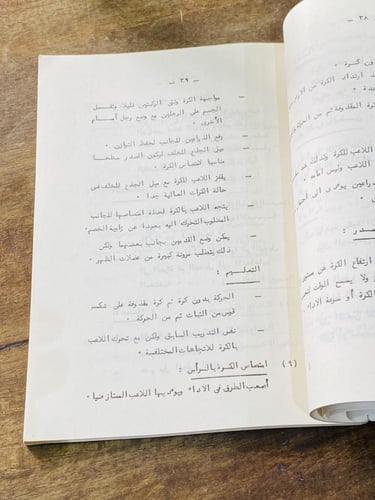 - ٣٩ -
- مواجهة الكرة وثنى الركبتين قليلا ونقل
الجسم على الرجلين مع وضع رجل أمام
الأخرى .
- رفع الذراعين للجانب لحفظ التوازن .
- ميل الجذع للخلف ليكون الصدر سطحا
مناسبا لامتصاص الكرة .
- يقفز اللاعب للكرة مع ميل الجذع للخلف فى
حالة الكرات العالية جدا .
- يتجه اللاعب بالكرة لحظة امتصاصها للجانب
المطلوب التحرك اليه بعيدا عن زاوية الخصم .
- يمكن وضع القدمين بجانب بعضهما ولكن
ذلك يتطلب مرونة كبيرة من عضلات الظهر .
التعليم :
- الحركة بدون كرة ثم كرة مقذوفة على شكل
قوس من الثبات ثم من الحركة .
- نفس التدريب السابق ولكن مع تحرك اللاعب
بالكرة للاتجاهات المختلفة .
(٤) امتصاص الكرة بالرأس :
أصعب الطرق فى الاداء ويؤديها اللاعب الممتاز فنيا .
- ٣٨ -
ون كرة .
ارتداد الكرة من
المقذوفة ثم من الحركة
اللاعب للكرة وكذلك
اللاعب وليس أمامه
يؤدى الى
صدر :
ارتفاع الكرة عن مستوى
ولا يسمح الوقت
الكرة أو سرعة الاداء